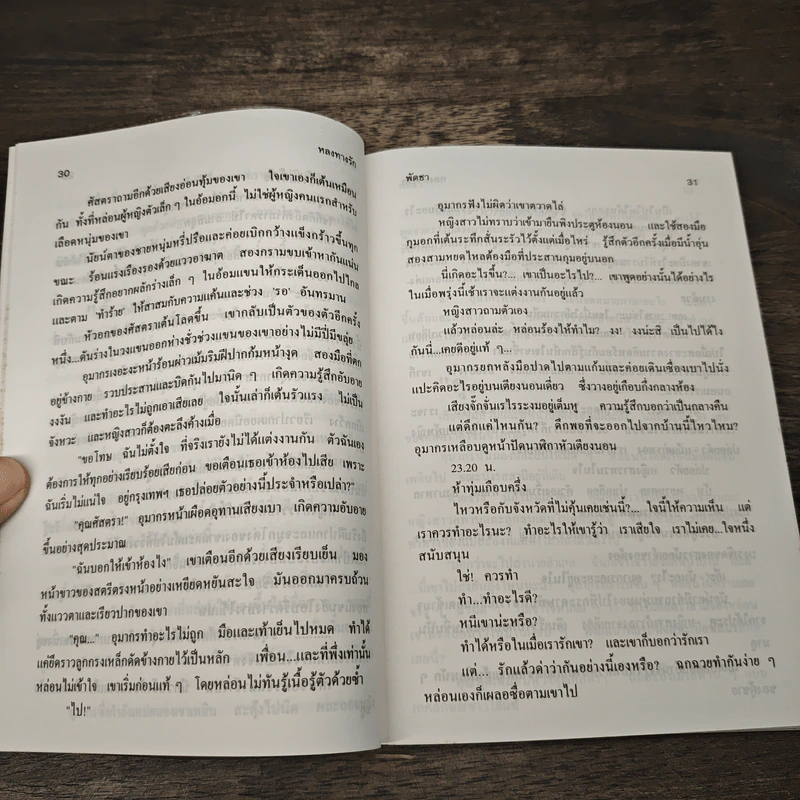 30
หลงทางรัก
ศัสตราถามอีกด้วยเสียงอ่อนทุ้มของเขา ใจเขาเองก็เต้นเหมือน
กัน ทั้งที่หล่อนผู้หญิงตัวเล็ก ๆ ในอ้อมอกนี้ ไม่ใช่ผู้หญิงคนแรกสำหรับ
เลือดหนุ่มของเขา
นัยน์ตาของชายหนุ่มหรี่ปรือและค่อยเบิกกว้างแข็งกร้าวขึ้นทุก
ขณะ ร้อนแรงเรืองรองด้วยแววอาฆาต สองกรามขบเข้าหากันแน่น
เกิดความรู้สึกอยากผลักร่างเล็ก ๆ ในอ้อมแขนให้กระเด็นออกไปไกล
และตาม 'ทำร้าย' ให้สาสมกับความแค้นและช่วง 'รอ' อันทรมาน
หัวอกของศัสตราเต้นโลดขึ้น เขากลับเป็นตัวของตัวอีกครั้ง
หนึ่ง...ดันร่างในวงแขนออกห่างชั่วช่วงแขนของเขาอย่างไม่มีปี่มีขลุ่ย
อุมากรเงอะงะหน้าร้อนผ่าวเม้มริมฝีปากก้มหน้างุด สองมือที่ตก
อยู่ข้างกาย รวบประสานและบิดกันไปมานิด ๆ เกิดความรู้สึกอับอาย
งงงัน และทำอะไรไม่ถูกเอาเสียเลย ใจนั้นเล่าก็เต้นรัวแรง ไม่เป็น
จังหวะ และหญิงสาวก็ต้องตะลึงค้างเมื่อ
"ขอโทษ ฉันไม่ตั้งใจ ที่จริงเรายังไม่ได้แต่งงานกัน ตัวฉันเอง
ต้องการให้ทุกอย่างเรียบร้อยเสียก่อน ขอเตือนเธอเข้าห้องไปเสีย เพราะ
ฉันเริ่มไม่แน่ใจ อยู่กรุงเทพฯ เธอปล่อยตัวอย่างนี้ประจำหรือเปล่า?"
"คุณศัสตรา!" อุมากรหน้าเผือดอุทานเสียงเบา เกิดความอับอาย
ขึ้นอย่างสุดประมาณ
"ฉันบอกให้เข้าห้องไง" เขาเตือนอีกด้วยเสียงเรียบเย็น มอง
หน้าขาวของสตรีตรงหน้าอย่างเหยียดหยันสะใจ มันออกมาครบถ้วน
ทั้งแววตาและเรียวปากของเขา
"คุณ..." อุมากรทำอะไรไม่ถูก มือและเท้าเย็นไปหมด ทำได้
แค่ยึดราวลูกกรงเหล็กดัดข้างกายไว้เป็นหลัก เพื่อน...และที่พึ่งเท่านั้น
หล่อนไม่เข้าใจ เขาเริ่มก่อนแท้ ๆ โดยหล่อนไม่ทันรู้เนื้อรู้ตัวด้วยซ้ำ
"ไป!"
พัดชา
31
อุมากรฟังไม่ผิดว่าเขาตวาดไล่
หญิงสาวไม่ทราบว่าเข้ามายืนพิงประตูห้องนอน และใช้สองมือ
กุมอกที่เต้นระทึกสั่นระรัวไว้ตั้งแต่เมื่อไหร่ รู้สึกตัวอีกครั้งเมื่อมีน้ำอุ่น
สองสามหยดไหลต้องมือที่ประสานกุมอยู่บนอก
นี่เกิดอะไรขึ้น?... เขาเป็นอะไรไป?... เขาพูดอย่างนั้นได้อย่างไร
ในเมื่อพรุ่งนี้เช้าเราจะแต่งงานกันอยู่แล้ว
หญิงสาวถามตัวเอง
แล้วหล่อนล่ะ หล่อนร้องไห้ทำไม? งง! งงน่ะสิ เป็นไปได้ไง
กันนี่...เคยดีอยู่แท้ ๆ...
อุมากรยกหลังมือปาดไปตามแก้มและค่อยเดินเซื่องเบาไปนั่ง
แปะคิดอะไรอยู่บนเตียงนอนเดี่ยว ซึ่งวางอยู่เกือบกึ่งกลางห้อง
เสียงจั๊กจั่นเรไรระงมอยู่เต็มหู ความรู้สึกบอกว่าเป็นกลางคืน
แต่ดึกแค่ไหนกัน? ดึกพอที่จะออกไปจากบ้านนี้ไหวไหม?
อุมากรเหลือบดูหน้าปัดนาฬิกาหัวเตียงนอน
23.20 น.
ห้าทุ่มเกือบครึ่ง
ไหวหรือกับจังหวัดที่ไม่คุ้นเคยเช่นนี้?... ใจนี้ให้ความเห็น แต่
เราควรทำอะไรนะ? ทำอะไรให้เขารู้ว่า เราเสียใจ เราไม่เคย...ใจหนึ่ง
สนับสนุน
ใช่! ควรทำ
ทำ...ทำอะไรดี?
หนีเขาน่ะหรือ?
ทำได้หรือในเมื่อเรารักเขา? และเขาก็บอกว่ารักเรา
แต่... รักแล้วด่าว่ากันอย่างนี้เองหรือ? ฉกฉวยทำกันง่าย ๆ
หล่อนเองก็เผลอซื่อตามเขาไป